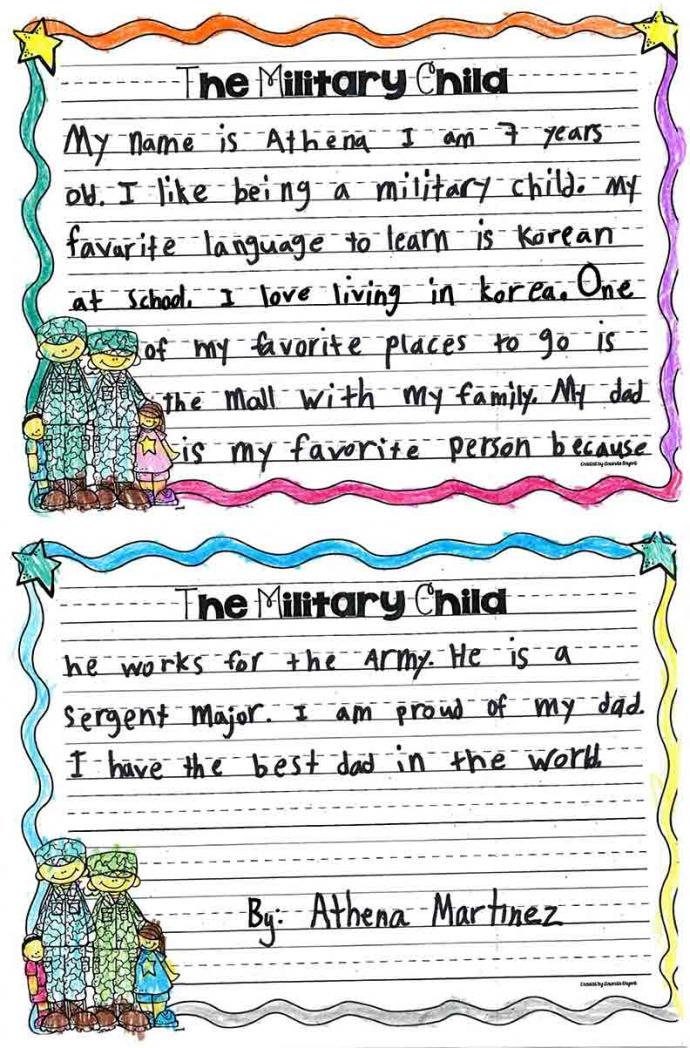 The Military Child
My name is Athena I am 7 years
old. I like being a military child. My
favorite language to learn is Korean
at school. I love living in korea. One
of my favorite places to go is
the mall with my family. My dad
is my favorite person because
Created by Amanda Bryant
The Military Child
he works for the Army. He is a
Sergent Major. I am proud of my dad.
I have the best dad in the world.
By: Athena Martinez
Created by Amanda Bryant